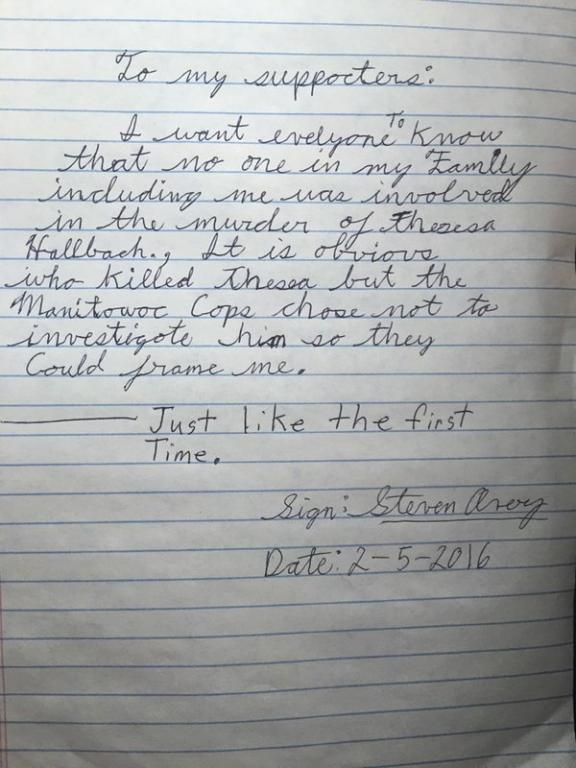 To my suppocters:
I want evelyone To Know
that no one in my Famlly
including me was involved
in the murder of Thesesa
Hallbach., It is obvious
who killed Thesea but the
Manitowoc Cops chose not to
investigote him so they
Could frame me.
Just like the first
Time.
Sign: Steven Avery
Date: 2-5-2016